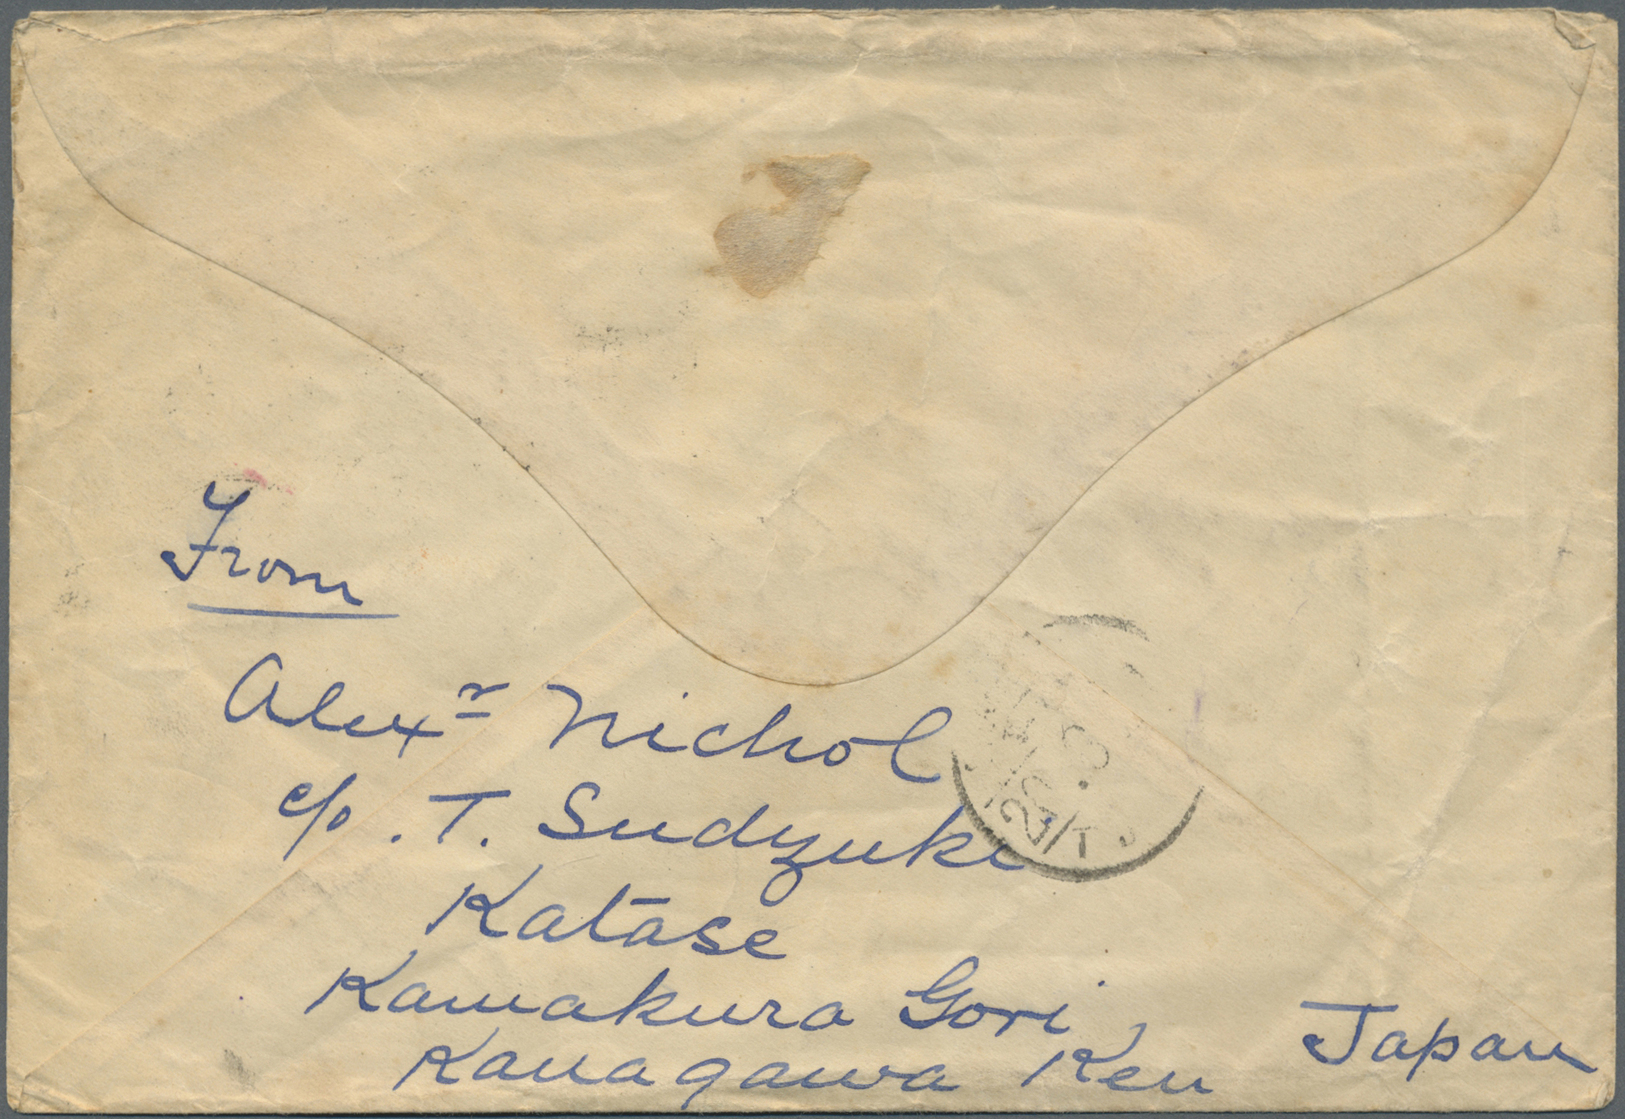 From
Alexr Nichol
c/o. T. Sudzuki
Katase
Kamakura Gori,
Kanagawa Ken Japan